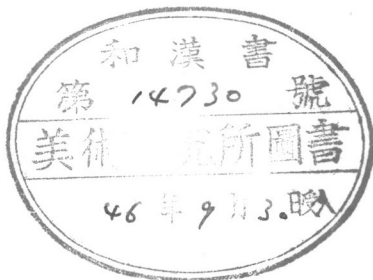 和漢書
第 14730 號
美術 究所圖書
46 年 9 月 30日